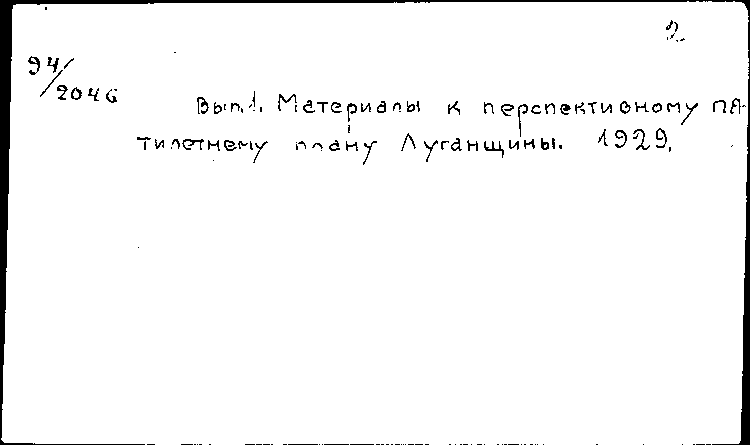 2
94/2046
Вып.1. Материалы к перспективному пя-
тилетнему плану Луганщины. 1929.